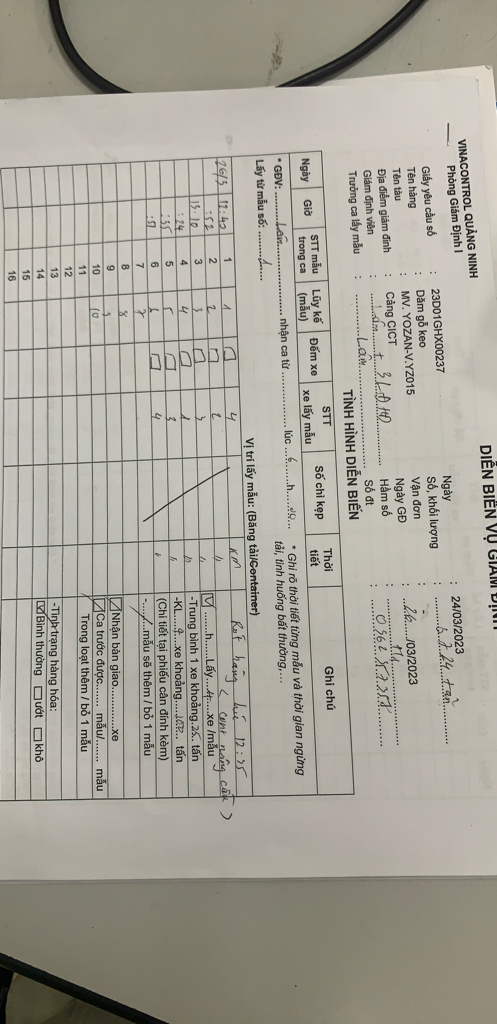 VINACONTROL QUẢNG NINH
Phòng Giám Định I
DIỄN BIẾN VỤ GIÁM ĐỊNH
Ngày : 24/03/2023
Giấy yêu cầu số : 23D01GHX00237
Số, khối lượng : 6.724 tấn
Tên hàng : Dăm gỗ keo
Vận đơn :
Tên tàu : MV. YOZAN-V.YZ015
Ngày GĐ : 26 /03/2023
Địa điểm giám định : Cảng CICT
Hầm số :
Giám định viên : Lâm +
Số đt :
Trưởng ca lấy mẫu : Lâm
TÌNH HÌNH DIỄN BIẾN
Ngày Giờ STT mẫu trong ca Lũy kế (mẫu) Đếm xe STT xe lấy mẫu Số chì kẹp Thời tiết Ghi chú
* GĐV: Lâm nhận ca từ lúc 6 h
Lấy từ mẫu số: 1
* Ghi rõ thời tiết từng mẫu và thời gian ngừng
tải, tình huống bất thường,...
Vị trí lấy mẫu: (Băng tải/Container)
26/3 12:40 1 1 4 Rút hàng lúc 12:35
:52 2 2 2
13:10 3 3 3 h Lấy xe /mẫu
:24 4 4 1 -Trung bình 1 xe khoảng 25 tấn
:35 5 5 3 -KL 4 xe khoảng 100 tấn
:51 6 6 4 (Chi tiết tại phiếu cân đính kèm)
7 7 - mẫu sẽ thêm / bỏ 1 mẫu
8 8
9 9 Nhận bàn giao xe
10 10 Ca trước được mẫu/ mẫu
11 Trong loạt thêm / bỏ 1 mẫu
12
13 -Tình trạng hàng hóa:
14 Bình thường ướt khô
15
16